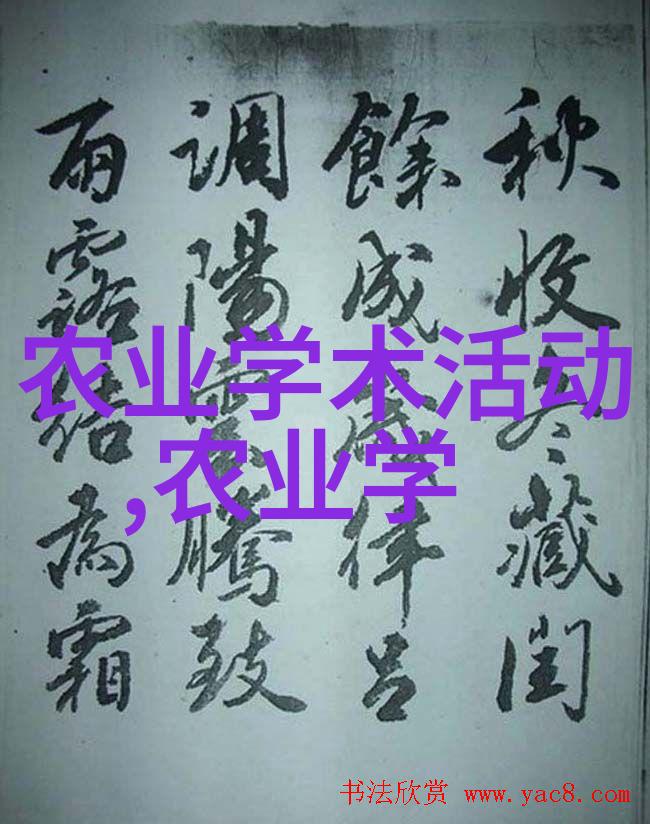 秋收冬藏閏
餘成歲律呂
調陽雲騰致
雨露結為霜
农业学术活动
,农业学
书法欣赏 www.yac8.com